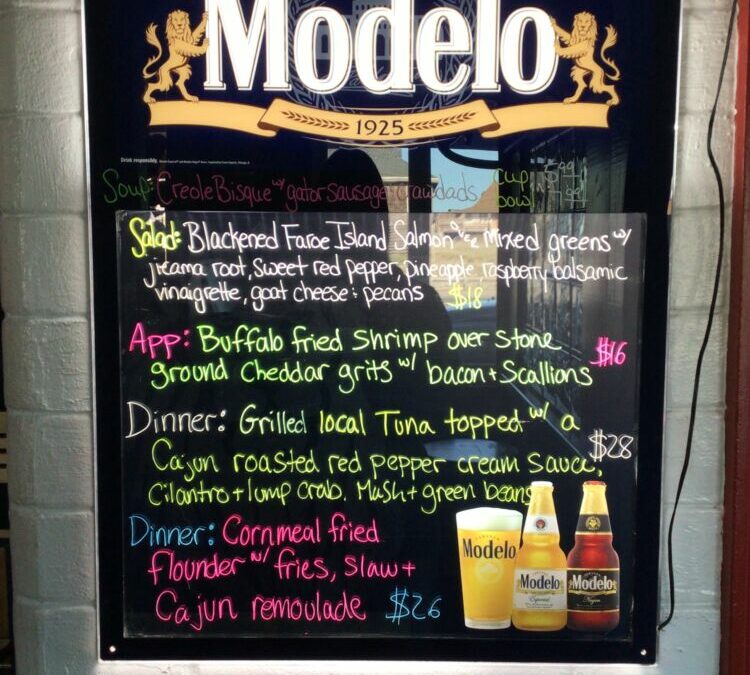 Modelo
1925
Drink responsibly.
Soup: Creole Bisque w/ gator sausage + crawdads cup
bowl
Salad: Blackened Faroe Island Salmon over mixed greens w/
jicama root, sweet red pepper, pineapple, raspberry balsamic
vinaigrette, goat cheese + pecans $18
App: Buffalo fried Shrimp over Stone $16
ground Cheddar grits w/ bacon + Scallions
Dinner: Grilled local Tuna topped w/ a $28
Cajun roasted red pepper cream sauce,
Cilantro + lump crab. Mash + green beans
Dinner: Cornmeal fried
flounder w/ fries, slaw +
Cajun remoulade $26
Modelo
Modelo
Especial
Modelo
Negra